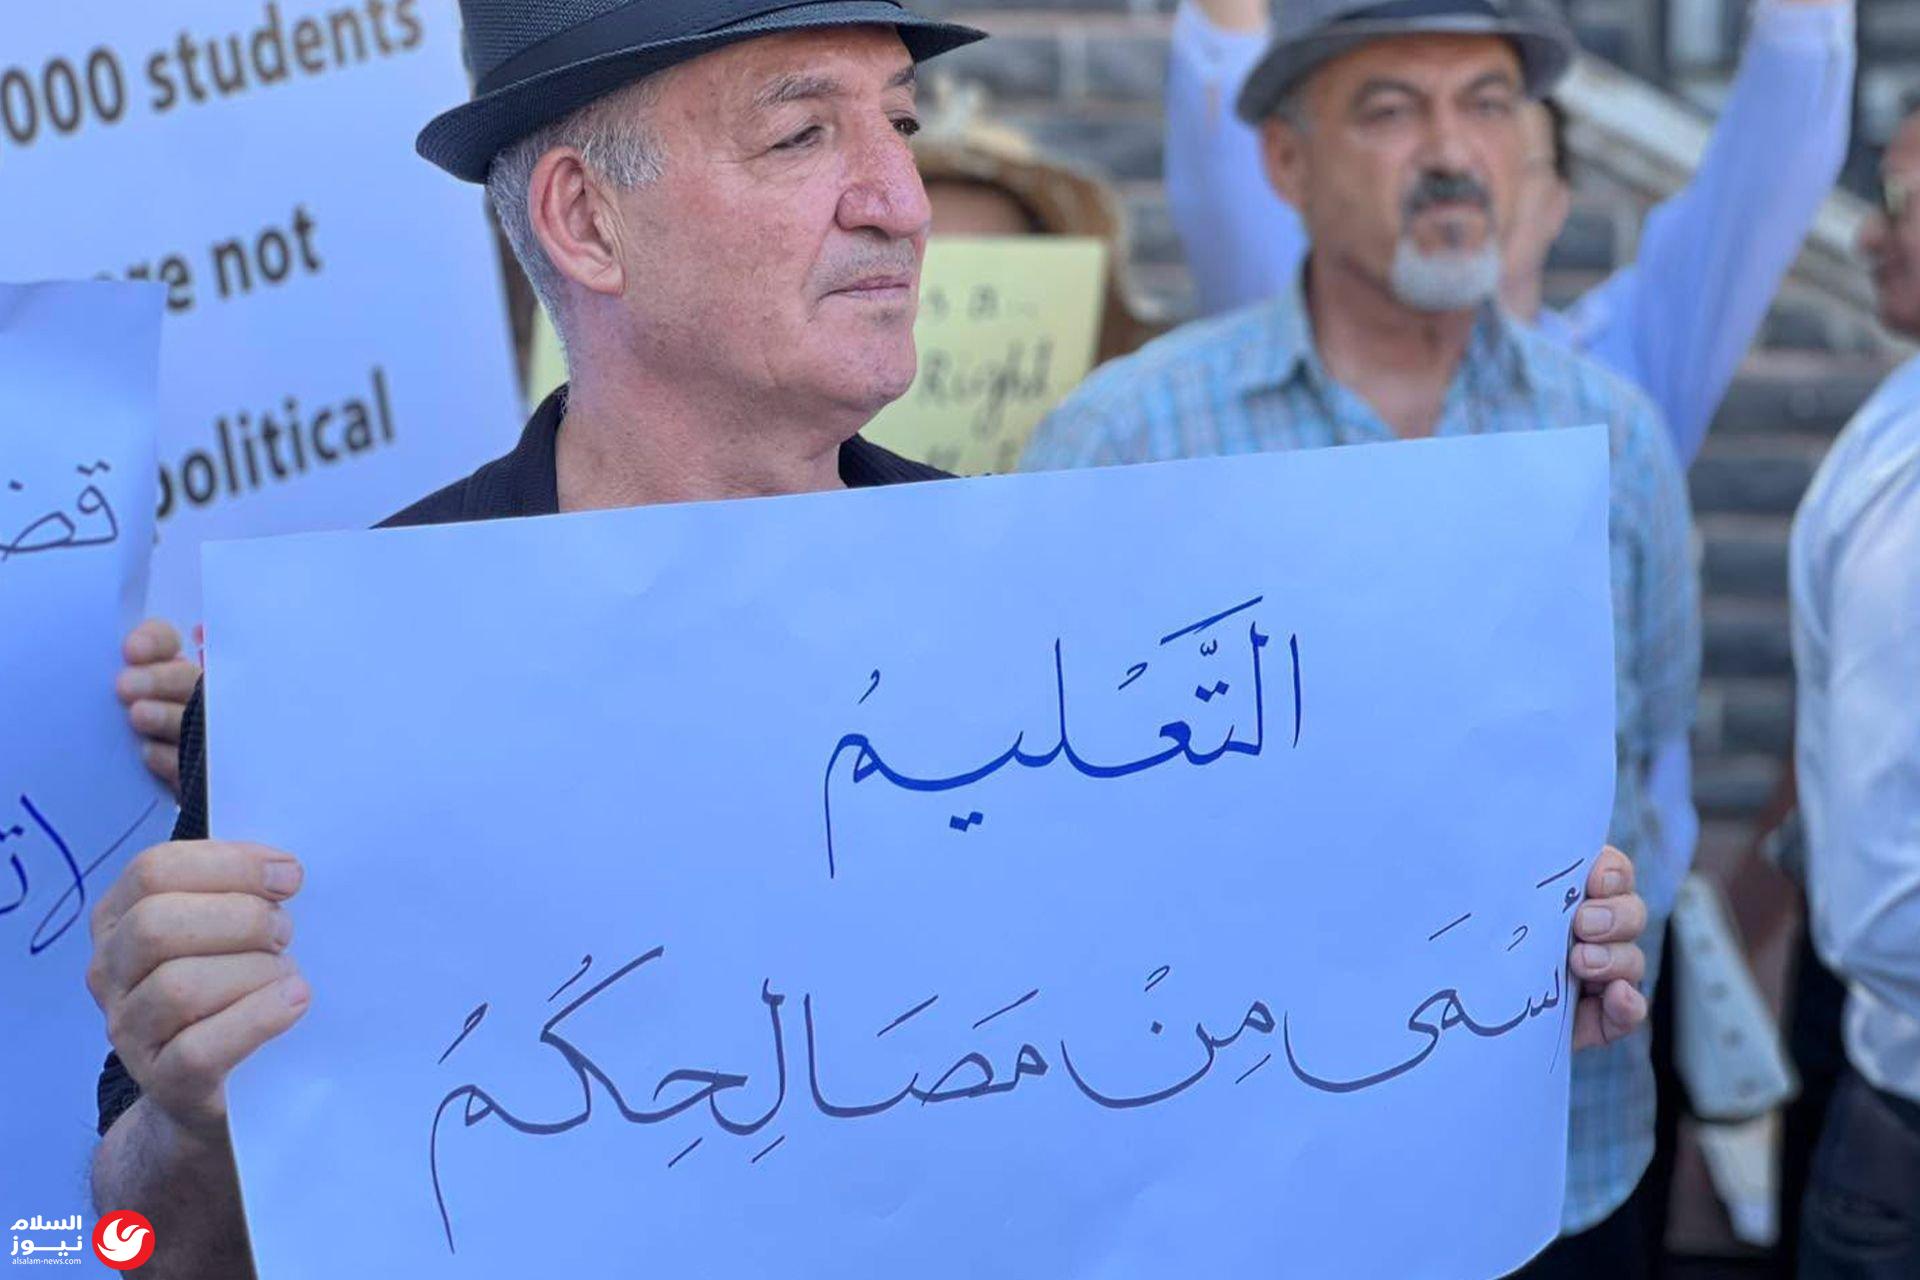 000 students
re not
political
s a
Right
قض
لا ت
التَّعْلِيمُ
أَسْمَى مِنْ مَصَالِحِكُمُ
السلام
نيوز
alsalam-news.com